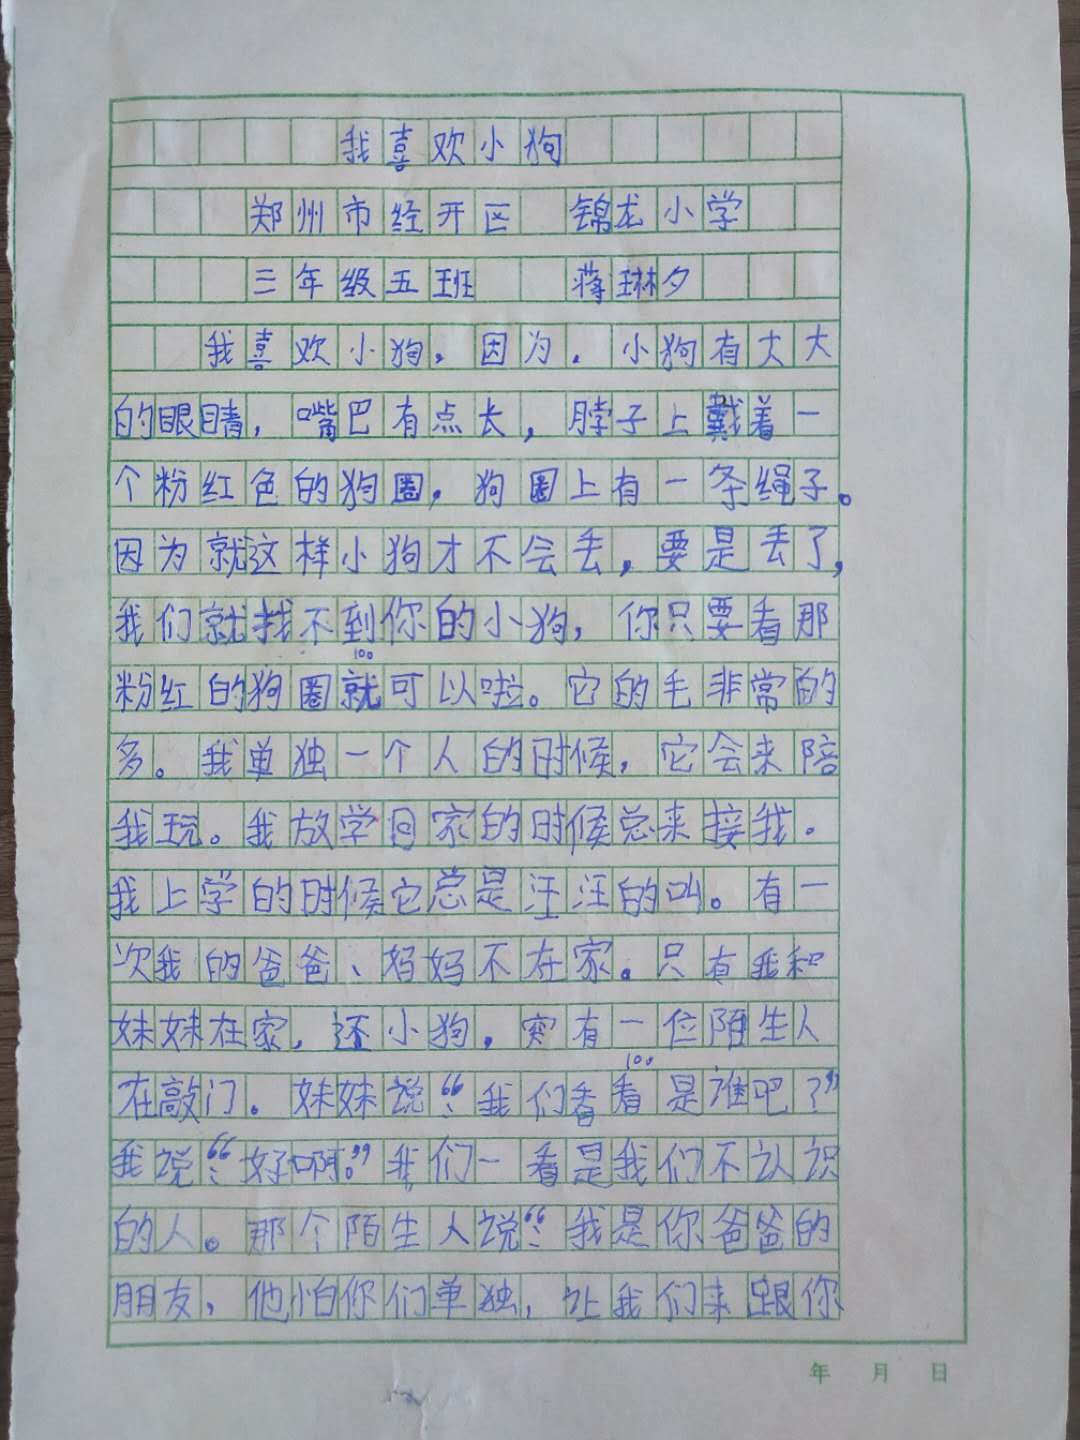 我喜欢小狗
郑州市经开区 锦龙小学
三年级五班 蒋琳夕
我喜欢小狗，因为，小狗有大大
的眼睛，嘴巴有点长，脖子上戴着一
个粉红色的狗圈，狗圈上有一条绳子。
因为就这样小狗才不会丢，要是丢了，
我们就找不到你的小狗，你只要看那
100
粉红的狗圈就可以啦。它的毛非常的
多。我单独一个人的时候，它会来陪
我玩。我放学回家的时候总来接我.
我上学的时候它总是汪汪的叫。有一
次我的爸爸、妈妈不在家。只有我和
妹妹在家，还小狗，突有一位陌生人
100
在敲门。妹妹说：“我们看看是谁吧？”
我说：“好啊。”我们一看是我们不认识
的人。那个陌生人说：“我是你爸爸的
朋友，他怕你们单独，让我们来跟你
年 月 日